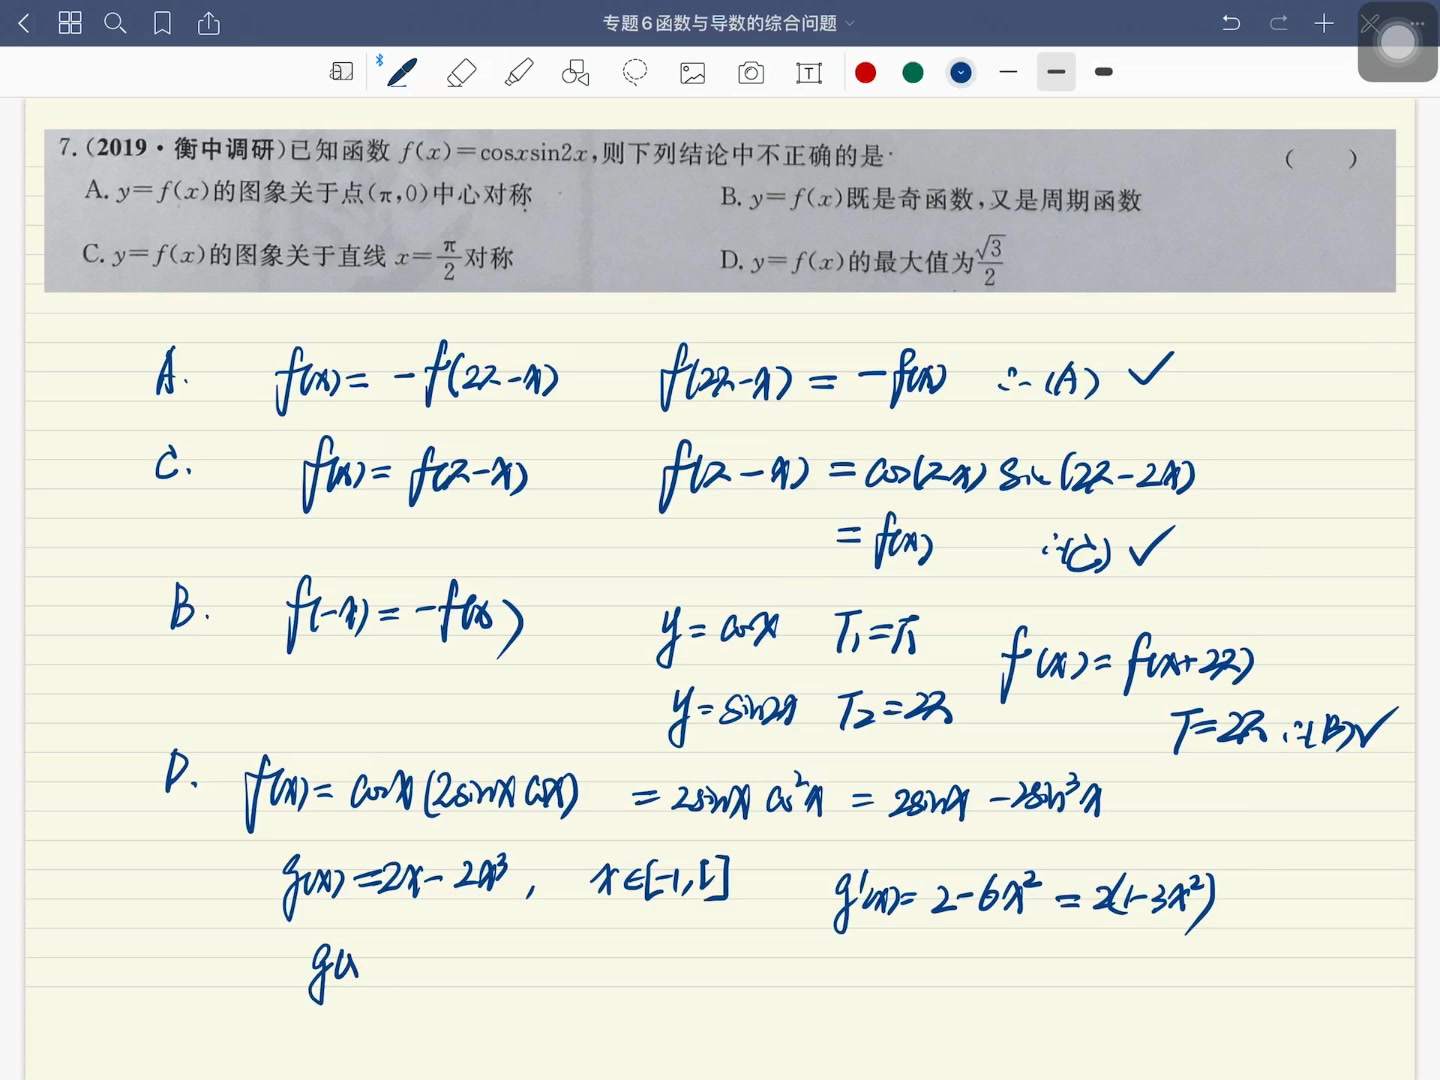 专题6函数与导数的综合问题
7.(2019·衡中调研)已知函数 f(x)=cosxsin2x,则下列结论中不正确的是 ( )
A. y=f(x)的图象关于点(π,0)中心对称 B. y=f(x)既是奇函数,又是周期函数
C. y=f(x)的图象关于直线 x=π/2对称 D. y=f(x)的最大值为√3/2
A. f(x)=-f(2π-x) f(2π-x)=-f(x) ∴(A) ✓
C. f(x)=f(π-x) f(π-x)=cos(π-x) sin(2π-2x)
=f(x) ∴(C) ✓
B. f(-x)=-f(x) y=cosx T₁=π f(x)=f(x+2π)
y=sin2x T₂=2π T=2π ∴(B)✓
D. f(x)=cosx(2sinx cosx) =2sinx cos²x =2sinx-2sin³x
g(x)=2x-2x³, x∈[-1,1] g'(x)=2-6x²=2(1-3x²)
g(